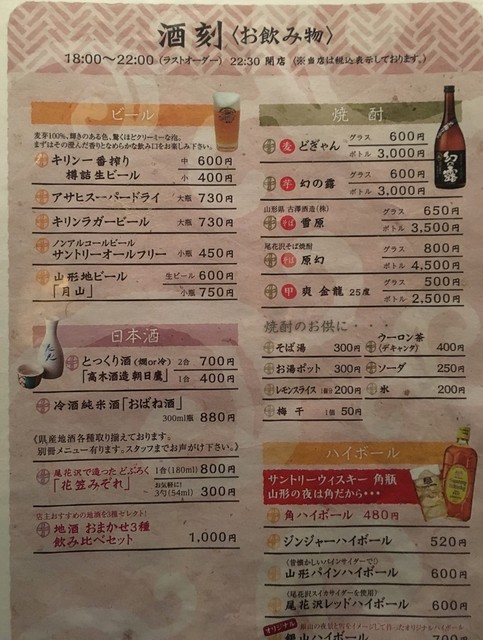 酒刻〈お飲み物〉
18:00〜22:00（ラストオーダー） 22:30 閉店（※当店は税込表示しております。）
ビール
麦芽100%、輝きのある色、驚くほどクリーミーな泡。
まずはその澄んだ香りとなめらかな飲み口をお楽しみ下さい。
キリン一番搾り 中 600円
樽詰生ビール 小 400円
アサヒスーパードライ 大瓶 730円
キリンラガービール 大瓶 730円
ノンアルコールビール
サントリーオールフリー 小瓶 450円
山形地ビール 生ビール 600円
「月山」 小瓶 750円
日本酒
とっくり酒（燗or冷） 2合 700円
「高木酒造 朝日鷹」 1合 400円
冷酒純米酒「おばね酒」
300ml瓶 880円
〈県産地酒各種取り揃えております。
別冊メニュー有ります。スタッフまでお声がけ下さい。〉
尾花沢で造ったどぶろく 1合(180ml) 800円
「花笠みぞれ」 お気軽に! 3勺(54ml) 300円
店主おすすめの地酒を3種セレクト!
地酒 おまかせ3種
飲み比べセット 1,000円
焼酎
麦 どぎゃん グラス 600円
ボトル 3,000円
芋 幻の露 グラス 600円
ボトル 3,000円
山形県 古澤酒造(株)
そば 雪原 グラス 650円
ボトル 3,500円
尾花沢そば焼酎
そば 原幻 グラス 800円
ボトル 4,500円
甲 爽 金龍 25度 グラス 500円
ボトル 2,500円
幻の露
焼酎のお供に・・・
そば湯 300円
お湯ポット 300円
レモンスライス 1個分 200円
梅干 1個 50円
ウーロン茶
（デキャンタ） 400円
ソーダ 250円
氷 200円
ハイボール
サントリーウィスキー 角瓶
山形の夜は角だから・・・
角ハイボール 480円
ジンジャーハイボール 520円
（昔懐かしいパインサイダーで!）
山形パインハイボール 600円
（尾花沢スイカサイダーを使用）
尾花沢レッドハイボール 600円
オリジナル 銀山の夜景と月をイメージして作ったオリジナルハイボール
銀山ハイボール 700円